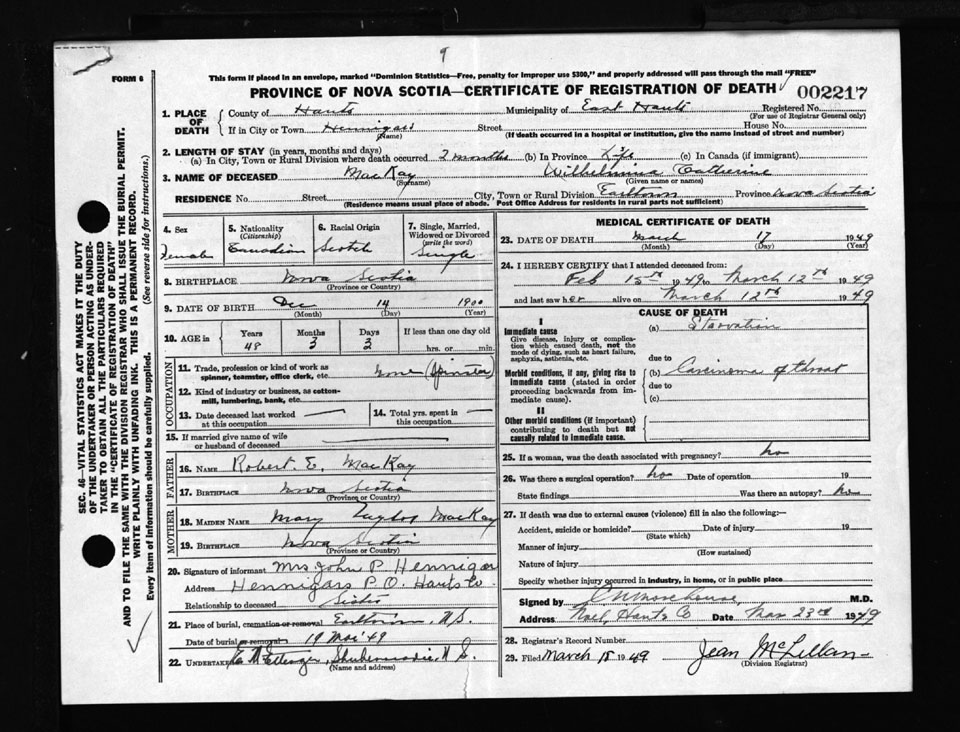 9
FORM 6
This form if placed in an envelope, marked "Dominion Statistics—Free, penalty for improper use $300," and properly addressed will pass through the mail "FREE"
PROVINCE OF NOVA SCOTIA—CERTIFICATE OF REGISTRATION OF DEATH 002217
1. PLACE OF DEATH
County of Hants Municipality of East Hants Registered No.
(For use of Registrar General only)
If in City or Town Hennigars Street House No.
(Name) (If death occurred in a hospital or institution, give the name instead of street and number)
2. LENGTH OF STAY (in years, months and days)
(a) In City, Town or Rural Division where death occurred 2 months (b) In Province Life (c) In Canada (if immigrant)
3. NAME OF DECEASED MacKay Wilhelmina Catherine
(Surname) (Given name or names)
RESIDENCE No. Street City, Town or Rural Division Earltown Province Nova Scotia
(Residence means usual place of abode. Post Office Address for residents in rural parts not sufficient)
4. Sex
Female
5. Nationality
(Citizenship)
Canadian
6. Racial Origin
Scotch
7. Single, Married, Widowed or Divorced
(write the word)
Single
8. BIRTHPLACE Nova Scotia
(Province or Country)
9. DATE OF BIRTH Dec 14 1900
(Month) (Day) (Year)
10. AGE in
Years Months Days If less than one day old
48 3 3 hrs. or min.
OCCUPATION
11. Trade, profession or kind of work as
spinner, teamster, office clerk, etc. None (Spinster)
12. Kind of industry or business, as cotton-
mill, lumbering, bank, etc.
13. Date deceased last worked
at this occupation
14. Total yrs. spent in
this occupation
15. If married give name of wife
or husband of deceased
FATHER
16. NAME Robert. E. MacKay
17. BIRTHPLACE Nova Scotia
(Province or Country)
MOTHER
18. MAIDEN NAME Mary Taylor MacKay
19. BIRTHPLACE Nova Scotia
(Province or Country)
20. Signature of informant Mrs. John P Hennigar
Address Hennigars P.O. Hants Co
Relationship to deceased Sister
21. Place of burial, cremation or removal Earltown, N.S.
Date of burial or removal 19 Mar 49
22. Undertaker E N Ettinger, Shubenacadie, N S.
(Name and address)
MEDICAL CERTIFICATE OF DEATH
23. DATE OF DEATH March 17 1949
(Month) (Day) (Year)
24. I HEREBY CERTIFY that I attended deceased from:
Feb 15th 1949 to March 12th 1949
and last saw her alive on March 12th 1949
CAUSE OF DEATH
I
Immediate cause
Give disease, injury, or complica-
tion which caused death, not the
mode of dying, such as heart failure,
asphyxia, asthenia, etc.
(a) Starvation
due to
Morbid conditions, if any, giving rise to
immediate cause (stated in order
proceeding backwards from im-
mediate cause).
(b) Carcinoma of throat
due to
(c)
II
Other morbid conditions (if important)
contributing to death but not
causally related to immediate cause.
25. If a woman, was the death associated with pregnancy? no
26. Was there a surgical operation? no Date of operation 19
State findings Was there an autopsy? no
27. If death was due to external causes (violence) fill in also the following:—
Accident, suicide or homicide? Date of injury 19
(State which)
Manner of injury
(How sustained)
Nature of injury
Specify whether injury occurred in industry, in home, or in public place
Signed by M.D.
Address Noel, Hants Co Date Mar 23rd 1949
28. Registrar's Record Number
29. Filed March 18 1949 Jean McLellan
(Division Registrar)
SEC. 46—VITAL STATISTICS ACT MAKES IT THE DUTY
OF THE UNDERTAKER OR PERSON ACTING AS UNDER-
TAKER TO OBTAIN ALL THE PARTICULARS REQUIRED
IN THE "CERTIFICATE OF REGISTRATION OF DEATH"
AND TO FILE THE SAME WITH THE DIVISION REGISTRAR WHO SHALL ISSUE THE BURIAL PERMIT.
WRITE PLAINLY WITH UNFADING INK. THIS IS A PERMANENT RECORD.
Every item of information should be carefully supplied. (See reverse side for instructions.)